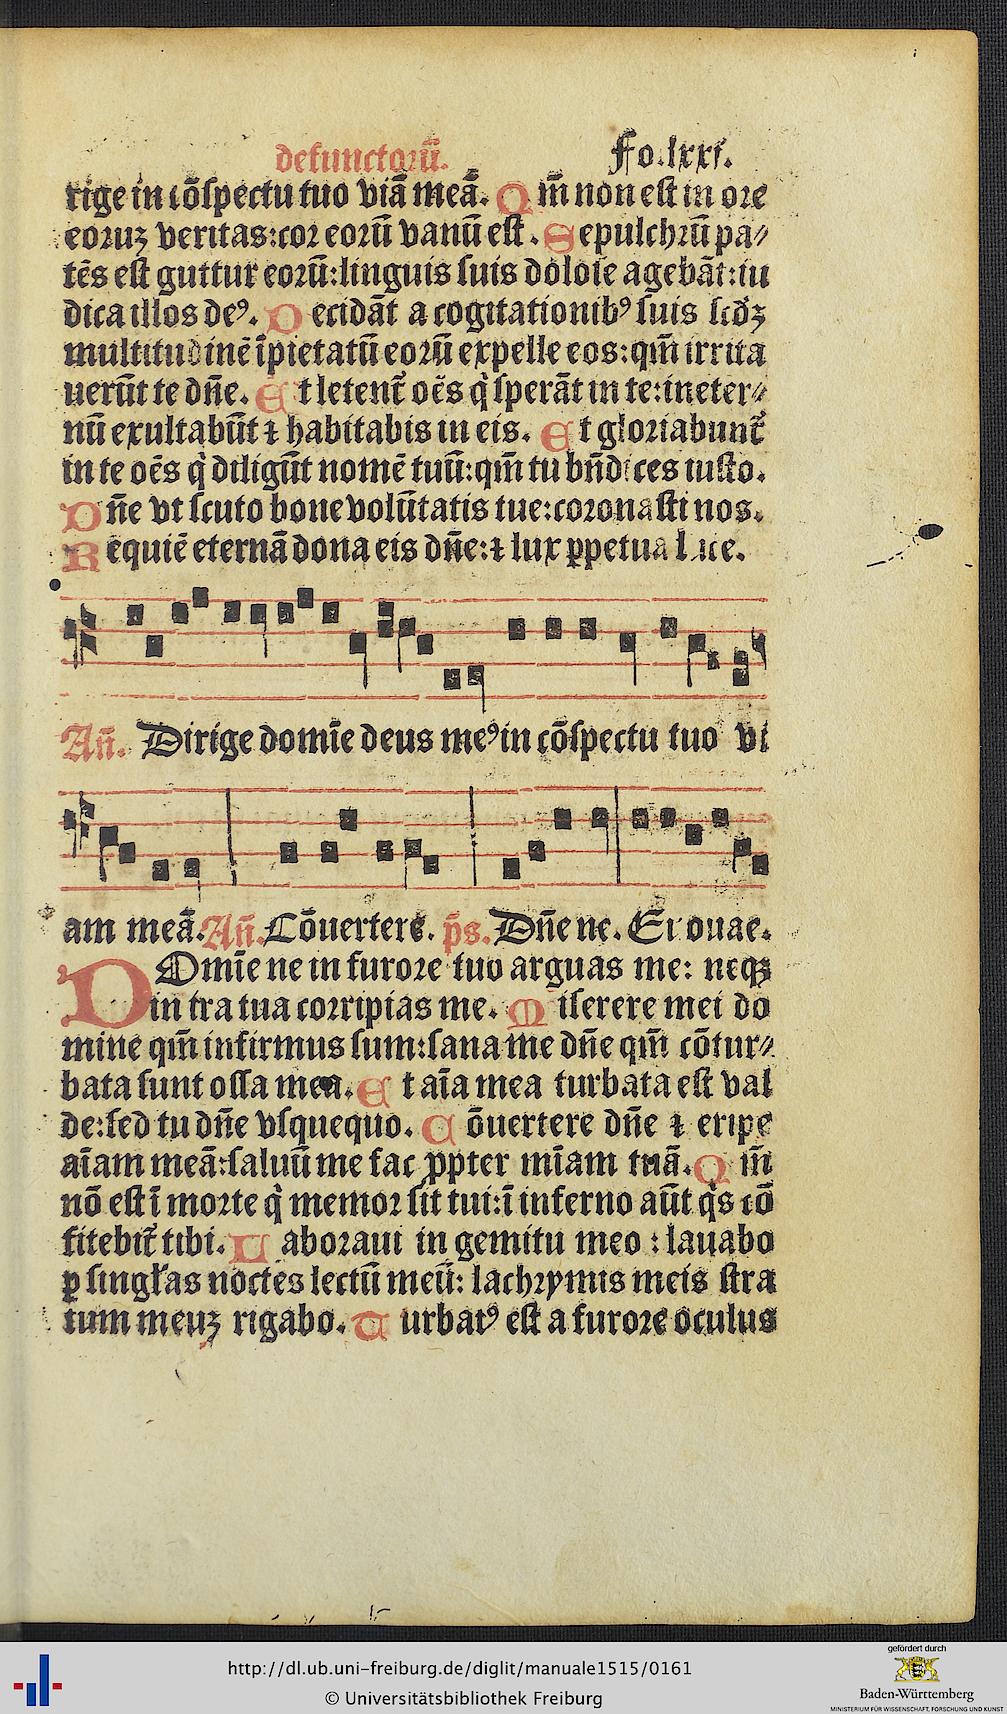 defunctorū. Fo.lxxi.
rige in cōspectu tuo viā meā. Qm̄ non est in ore
eoruꝫ veritas:cor eorū vanū est. Sepulchrū pa⸗
tēs est guttur eorū:linguis suis dolose agebāt:iu
dica illos deꝰ. Decidāt a cogitationibꝰ suis scd̄ꝫ
multitudinē īpietatū eorū expelle eos:qm̄ irrita
uerūt te dn̄e. Et letent᷑ oēs q̇ sperāt in te:in eter⸗
nū exultabūt ⁊ habitabis in eis. Et gloriabunt᷑
in te oēs q̇ diligūt nomē tuū:qm̄ tu bn̄dices iusto.
Dn̄e vt scuto bone volūtatis tue:coronasti nos.
Requiē eternā dona eis dn̄e:⁊ lux ꝑpetua luce.
Añ. Dirige domīe deus meꝰ in cōspectu tuo vi
am meā. Añ. Cōuertere. p̄s. Dn̄e ne. Euouae.
DOmīe ne in furore tuo arguas me: neqꝫ
in ira tua corripias me. Miserere mei do
mine qm̄ infirmus sum:sana me dn̄e qm̄ cōtur⸗
bata sunt ossa mea. Et aīa mea turbata est val
de:sed tu dn̄e vsquequo. Cōuertere dn̄e ⁊ eripe
aīam meā:saluū me fac ꝓpter mīam tuā. Qm̄
nō est ī morte q̇ memor sit tui:ī inferno aūt q̇s cō
fitebit᷑ tibi. Laboraui in gemitu meo : lauabo
ꝑ singl̄as noctes lectū meū: lachrymis meis stra
tum meuꝫ rigabo. Turbatꝰ est a furore oculus
http://dl.ub.uni-freiburg.de/diglit/manuale1515/0161
© Universitätsbibliothek Freiburg
gefördert durch
Baden-Württemberg
MINISTERIUM FÜR WISSENSCHAFT, FORSCHUNG UND KUNST